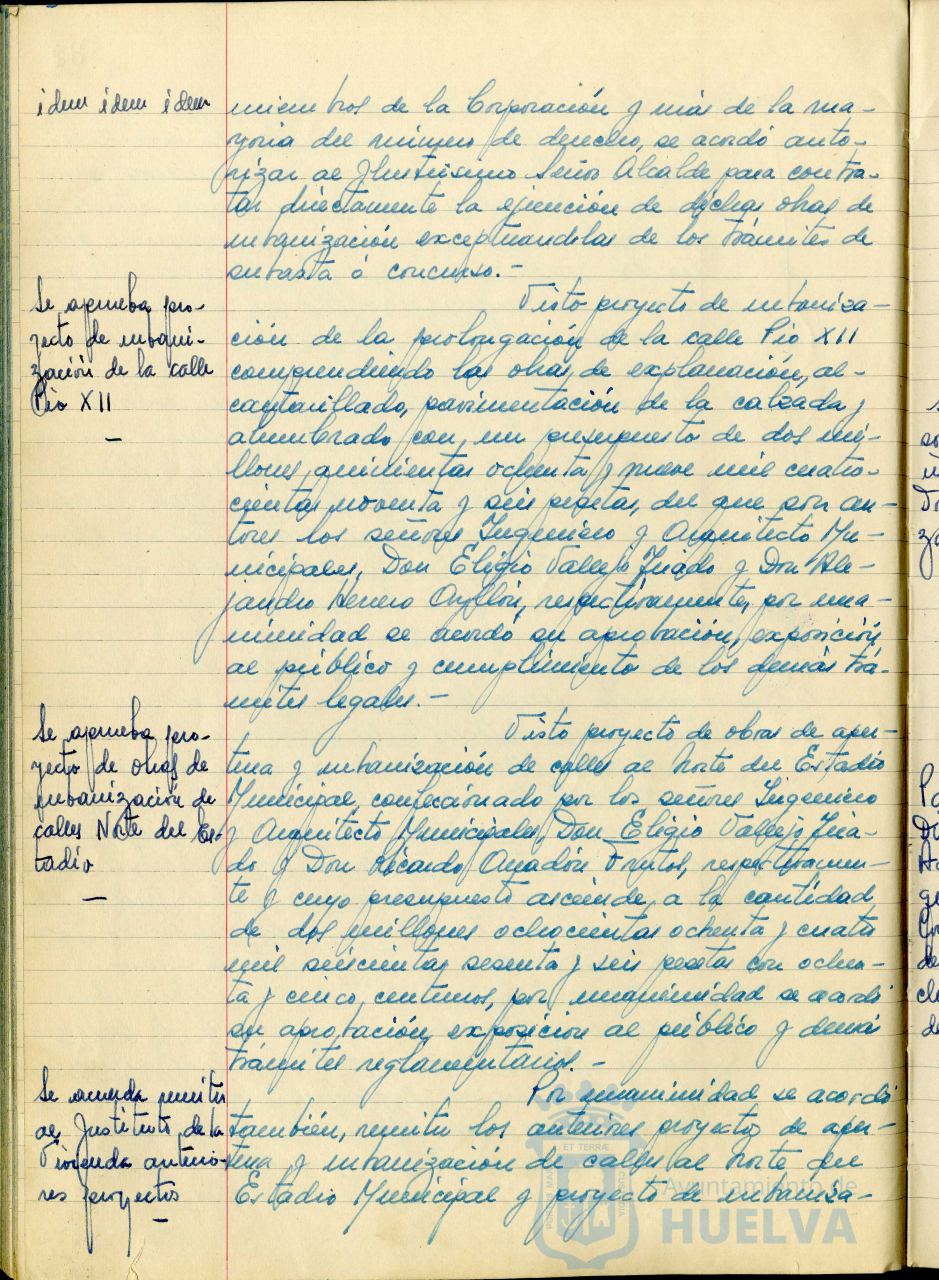 idem idem idem
miembros de la Corporación y más de la ma-
yoria del número de derecho, se acordó auto-
rizar al Ilustrisimo Señor Alcalde para contra-
tar directamente la ejecución de dichas obras de
urbanización exceptuandolas de los trámites de
subasta ó concurso.-
Se aprueba pro-
yecto de urbani-
zación de la calle
Pio XII
—
Visto proyecto de urbaniza-
ción de la prolongación de la calle Pio XII
comprendiendo las obras de explanación, al-
cantarillado, pavimentación de la calzada y
alumbrado con un presupuesto de dos mi-
llones quinientas ochenta y nueve mil cuatro-
cientas noventa y seis pesetas, del que son au-
tores los señores Ingeniero y Arquitecto Mu-
nicipales, Don Eligio Vallejo Jurado y Don Ale-
jandro Herrero Ayllón, respectivamente, por una-
nimidad se acordó su aprobación, exposición
al público y cumplimiento de los demás trá-
mites legales.-
Se aprueba pro-
yecto de obras de
urbanización de
calles Norte del Es-
tadio
—
Visto proyecto de obras de aper-
tura y urbanización de calles al Norte del Estadio
Municipal, confeccionado por los señores Ingeniero
y Arquitecto Municipales Don Eligio Vallejo Jura-
do y Don Ricardo Anadón Frutos, respectivamen-
te y cuyo presupuesto asciende a la cantidad
de dos millones ochocientas ochenta y cuatro
mil seiscientas sesenta y seis pesetas con ochen-
ta y cinco centimos, por unanimidad se acordó
su aprobación, exposición al público y demás
trámites reglamentarios.-
Se acuerda remitir
al Instituto de la
Vivienda anterio-
res proyectos
—
Por unanimidad se acordó
también, remitir los anteriores proyectos de aper-
tura y urbanización de calles al Norte del
Estadio Municipal y proyecto de urbaniza-
Ayuntamiento de
HUELVA